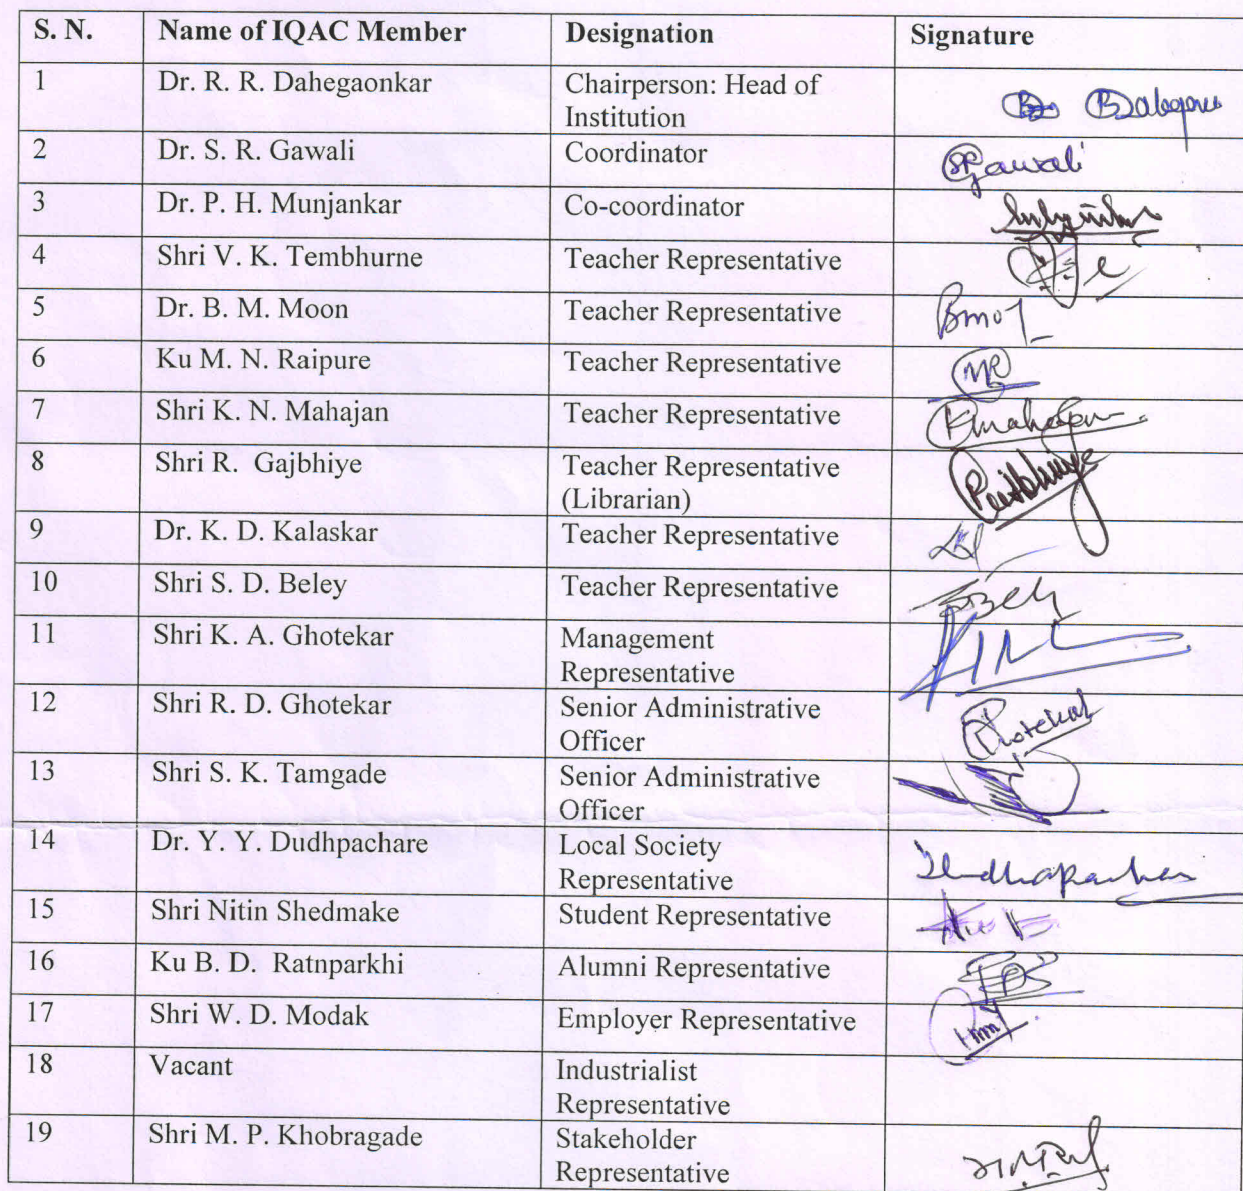 S. N. Name of IQAC Member Designation Signature
1 Dr. R. R. Dahegaonkar Chairperson: Head of
Institution
2 Dr. S. R. Gawali Coordinator SRGawali
3 Dr. P. H. Munjankar Co-coordinator
4 Shri V. K. Tembhurne Teacher Representative
5 Dr. B. M. Moon Teacher Representative
6 Ku M. N. Raipure Teacher Representative
7 Shri K. N. Mahajan Teacher Representative
8 Shri R. Gajbhiye Teacher Representative
(Librarian)
9 Dr. K. D. Kalaskar Teacher Representative
10 Shri S. D. Beley Teacher Representative
11 Shri K. A. Ghotekar Management
Representative
12 Shri R. D. Ghotekar Senior Administrative
Officer
13 Shri S. K. Tamgade Senior Administrative
Officer
14 Dr. Y. Y. Dudhpachare Local Society
Representative
15 Shri Nitin Shedmake Student Representative
16 Ku B. D. Ratnparkhi Alumni Representative
17 Shri W. D. Modak Employer Representative
18 Vacant Industrialist
Representative
19 Shri M. P. Khobragade Stakeholder
Representative